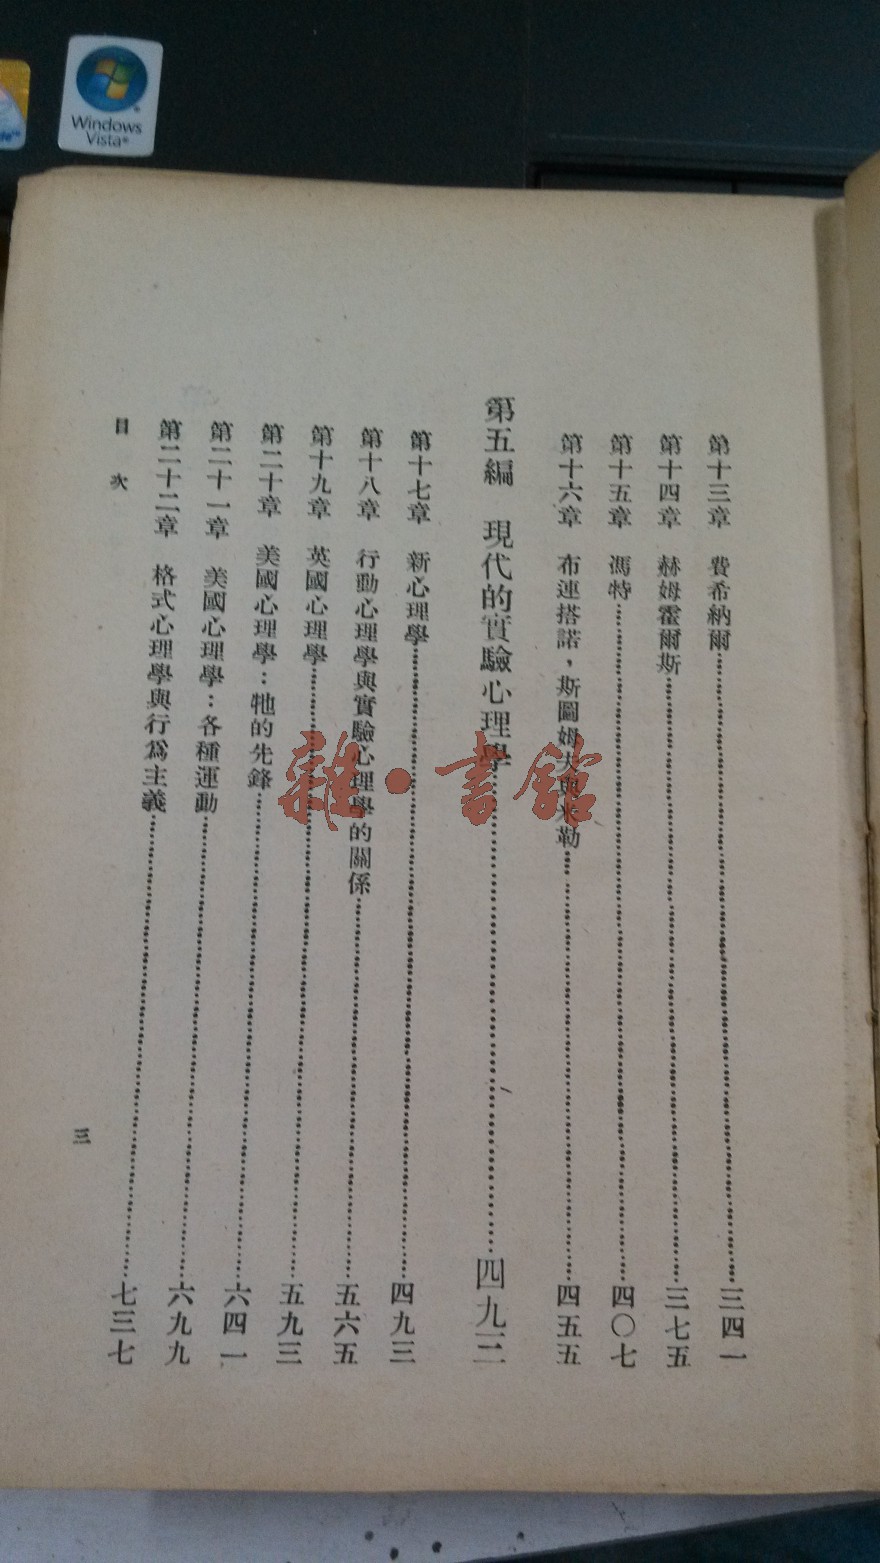 Windows
Vista
第十三章　費希納爾……三四一
第十四章　赫姆霍爾斯……三七五
第十五章　馮特……四〇七
第十六章　布連搭諾，斯圖姆夫與米勒……四五五
第五編　現代的實驗心理學……四九三
第十七章　新心理學……四九三
第十八章　行動心理學與實驗心理學的關係……五六五
第十九章　英國心理學……五九三
第二十章　美國心理學：牠的先鋒……六四一
第二十一章　美國心理學：各種運動……六九九
第二十二章　格式心理學與行爲主義……七三七
目次
三
雜·書館